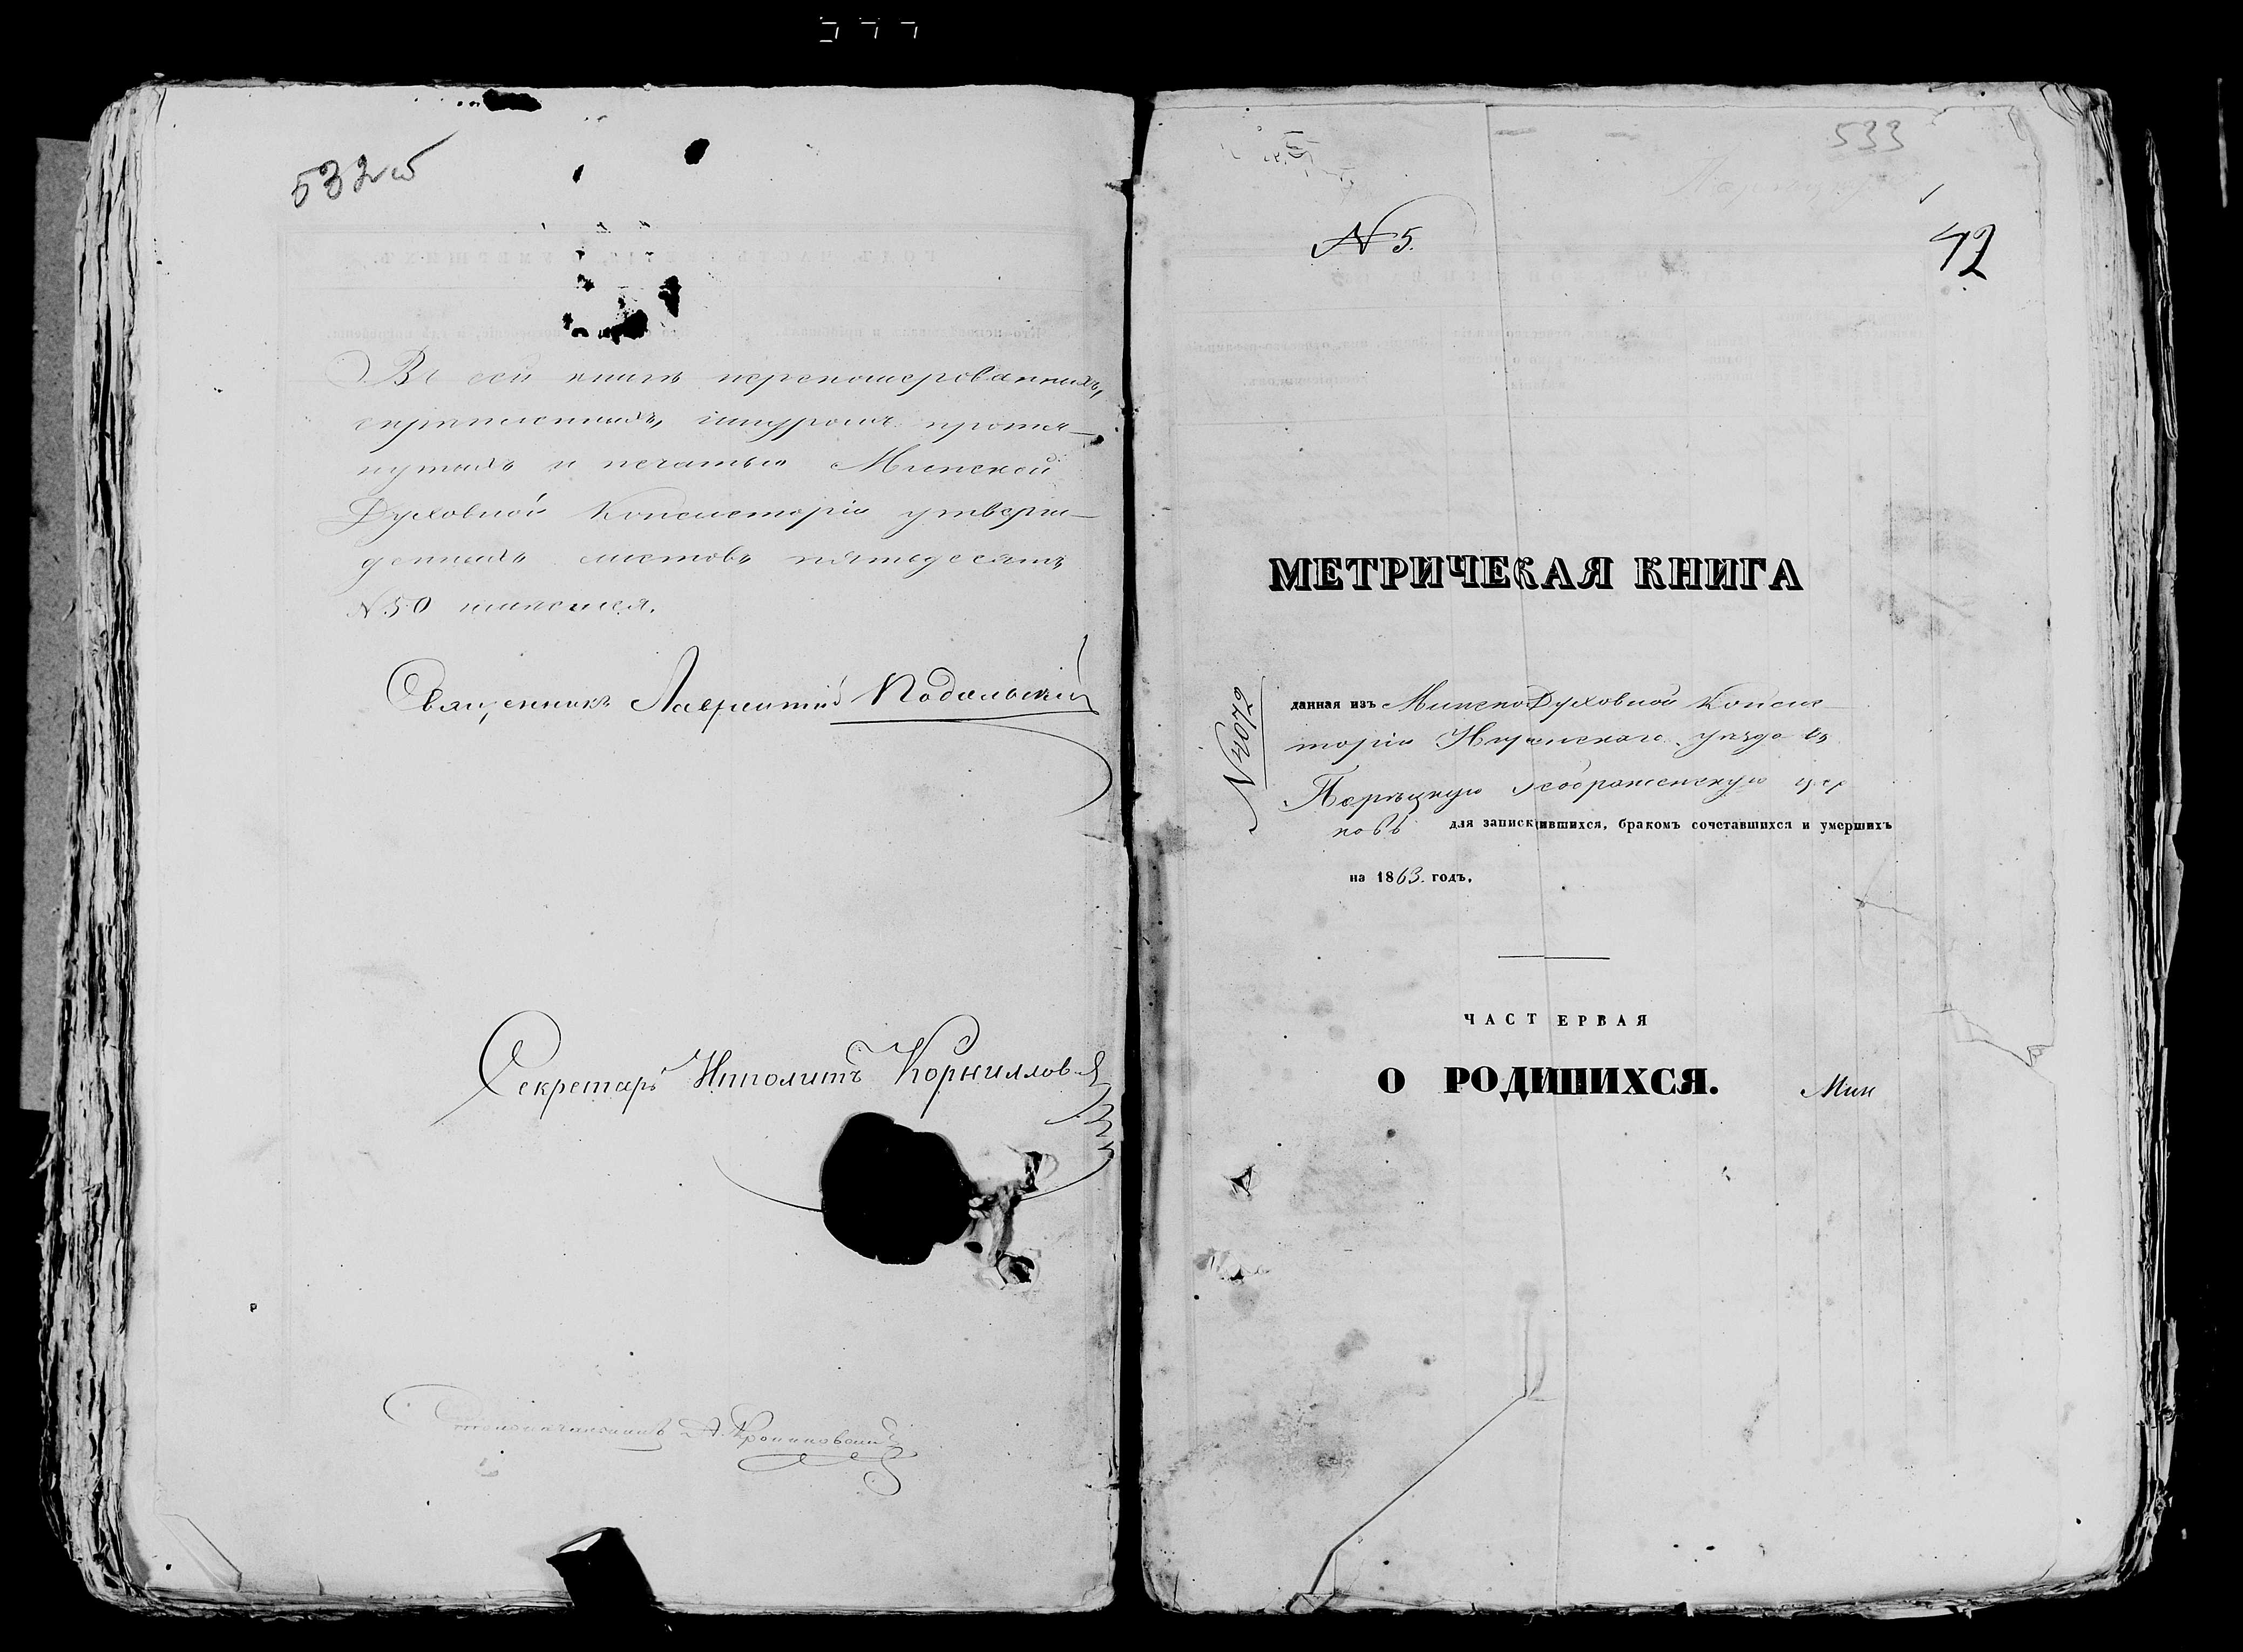 532 об
Въ сей книгѣ перенумерованныхъ,
скрѣпленныхъ, шнуромъ протя-
нутыхъ и печатью Минской
Духовной Консисторіи утверж-
денныхъ листовъ пятьдесятъ
№ 50 имѣется.
Священникъ Лаврентій Подольскій
Секретарь Ипполитъ Корниллов
Столоначальникъ А.
533
№ 5.
42
МЕТРИЧЕКАЯ КНИГА
№ 4072
данная изъ Минской Духовной Консис-
торіи Игуменскаго уѣзда въ
церковь для записк ившихся, бракомъ сочетавшихся и умершихъ
на 1863. годъ.
ЧАСТ ЕРВАЯ
О РОДИШИХСЯ.
Мин